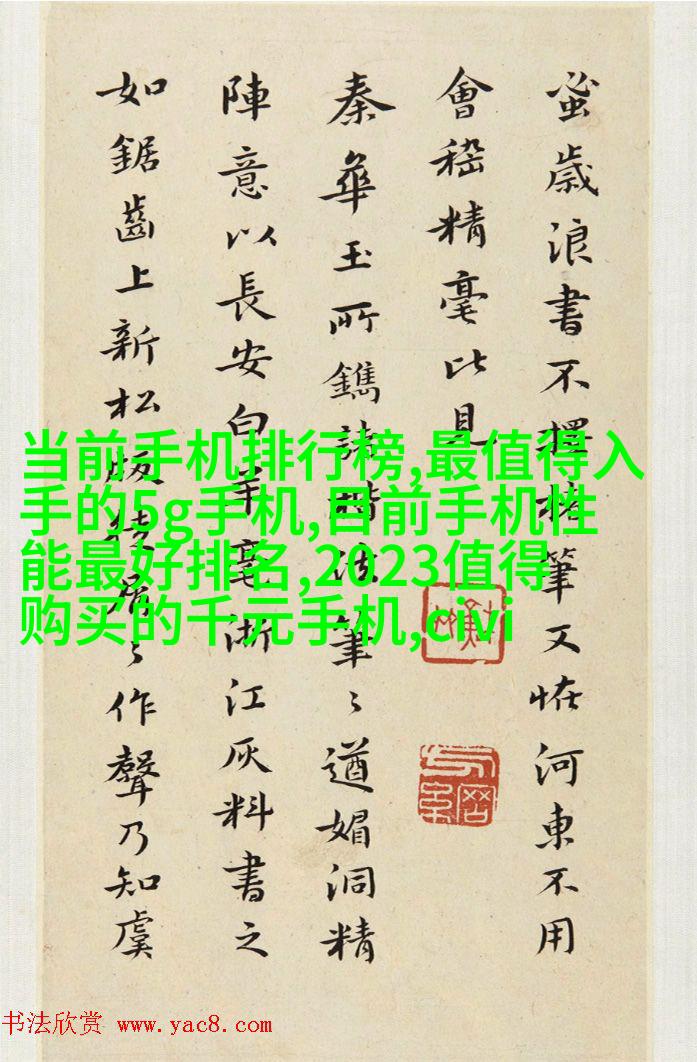 蚤歲浪書不擇楮筆又恠河東不用
會嵇精毫比見
秦華玉所鐫諸楷法筆〻遒媚洞精
陣意以長安白羊毫浙江灰料書之
如鋸齒上新松版屑〻作聲乃知虞
当前手机排行榜,最值得入
手的5g手机,目前手机性
能最好排名,2023值得
购买的千元手机,civi
书法欣赏 www.yac8.com